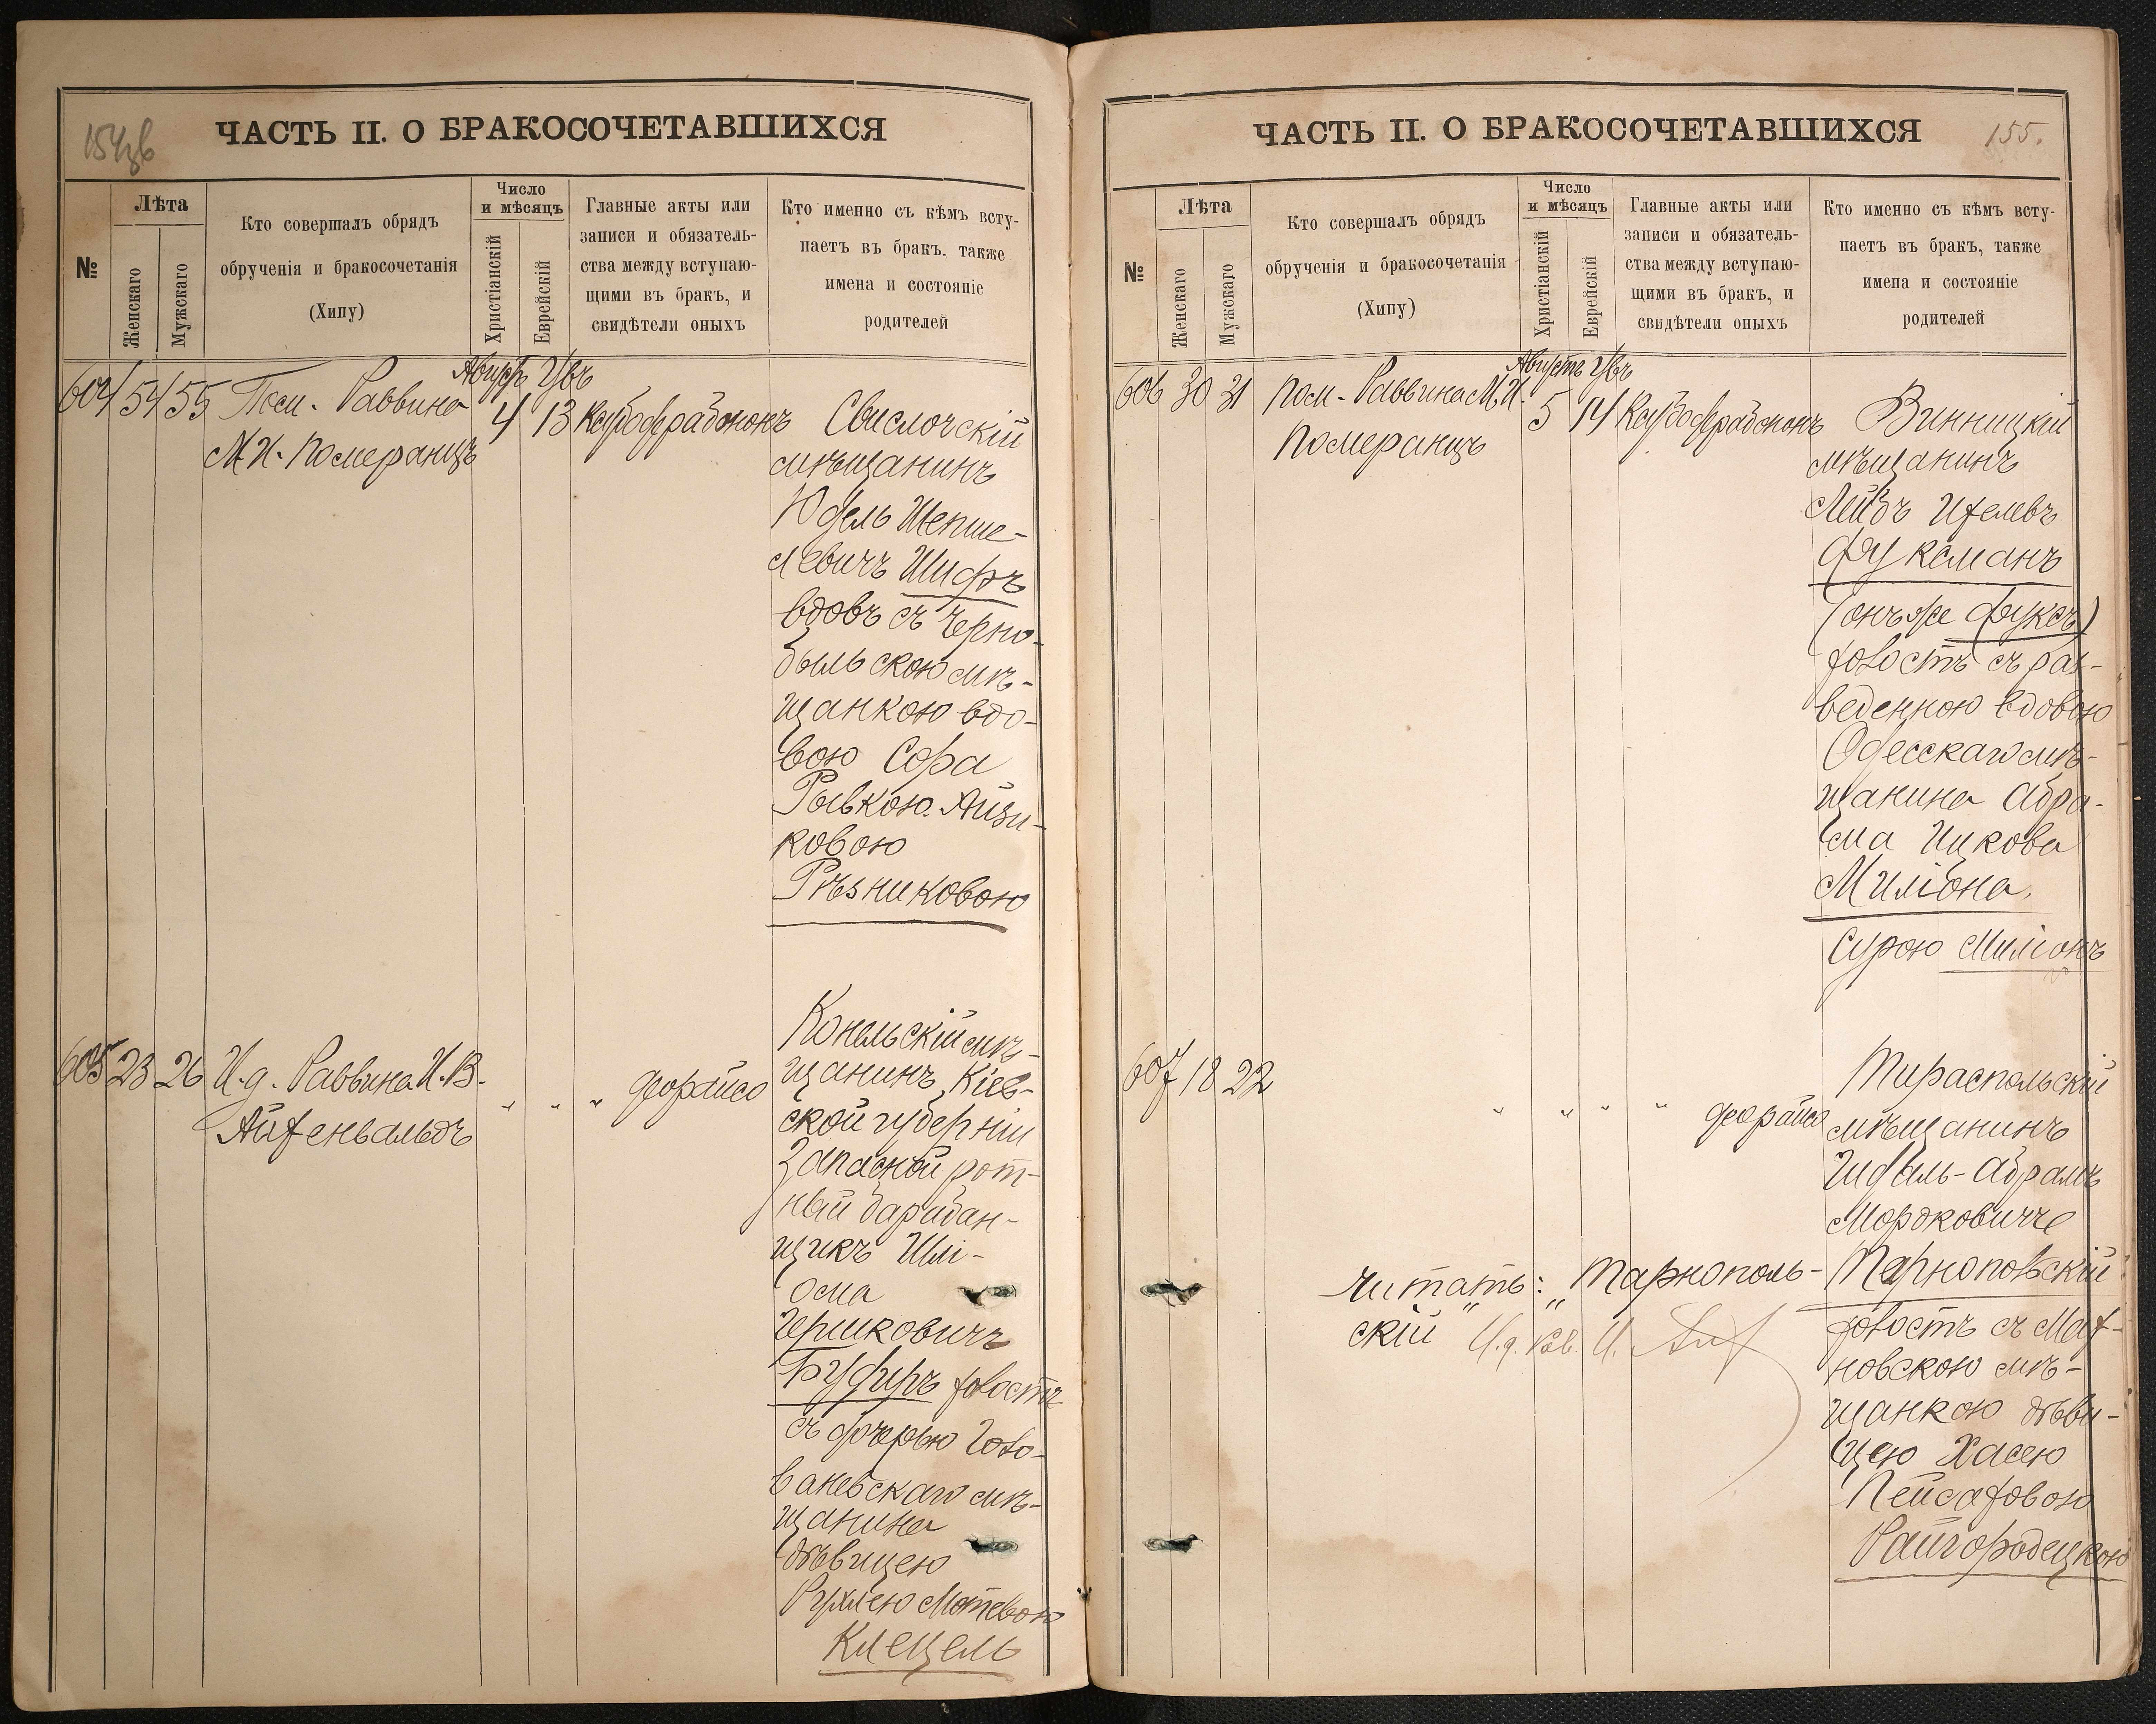 154об
ЧАСТЬ II. О БРАКОСОЧЕТАВШИХСЯ
№
Лѣта
Женскаго
Мужскаго
Кто совершалъ обрядъ
обрученія и бракосочетанія
(Хипу)
Число
и мѣсяцъ
Христіанскій
Еврейскій
Главные акты или
записи и обязатель-
ства между вступаю-
щими въ бракъ, и
свидѣтели оныхъ
Кто именно съ кѣмъ всту-
паетъ въ бракъ, также
имена и состояніе
родителей
604 54 55 Пом. Раввина
М.И. Померанцъ
Августъ
4 13
Свислочскій
мѣщанинъ
Юдель Шепше-
левичъ Шифръ
вдовъ съ Черно-
быльскою мѣ-
щанкою вдо-
вою Сора
Рывкою Айзи-
ковою
Рѣзниковою
605 23 26 И.д. Раввина И.В.
Айзенвальдъ
" " " деорайсо
Конельскій мѣ-
щанинъ Кіев-
ской губерніи
Запасной рот-
ный барабан-
щикъ Шлі-
ома
Гершковичъ
холостъ
съ дочерью Голо-
ваневскаго мѣ-
щанина
дѣвицею
Рухлею Мотевою
Клецель
ЧАСТЬ II. О БРАКОСОЧЕТАВШИХСЯ
155.
№
Лѣта
Женскаго
Мужскаго
Кто совершалъ обрядъ
обрученія и бракосочетанія
(Хипу)
Число
и мѣсяцъ
Христіанскій
Еврейскій
Главные акты или
записи и обязатель-
ства между вступаю-
щими въ бракъ, и
свидѣтели оныхъ
Кто именно съ кѣмъ всту-
паетъ въ бракъ, также
имена и состояніе
родителей
606 30 31 Пом. Раввина М.И.
Померанцъ
Августъ
5 14
Винницкій
мѣщанинъ
Лейбъ
Фуксманъ
(онъ же Фуксъ)
холостъ съ раз-
веденною вдовою
Одесскаго мѣ-
щанина Абра-
ма Ицкова
Миліона,
Сурою Миліонъ
607 18 22
" " " " деорайсо
Тираспольскій
мѣщанинъ
Гидаль-Абрамъ
Мордковичъ
Тарнопольскій
холостъ съ Маз-
новскою мѣ-
щанкою дѣви-
цею Хасею
Пейсаховою
Райгородецкою
читать: "Тарнополь-
скій" И.д. Рав. И. Айз